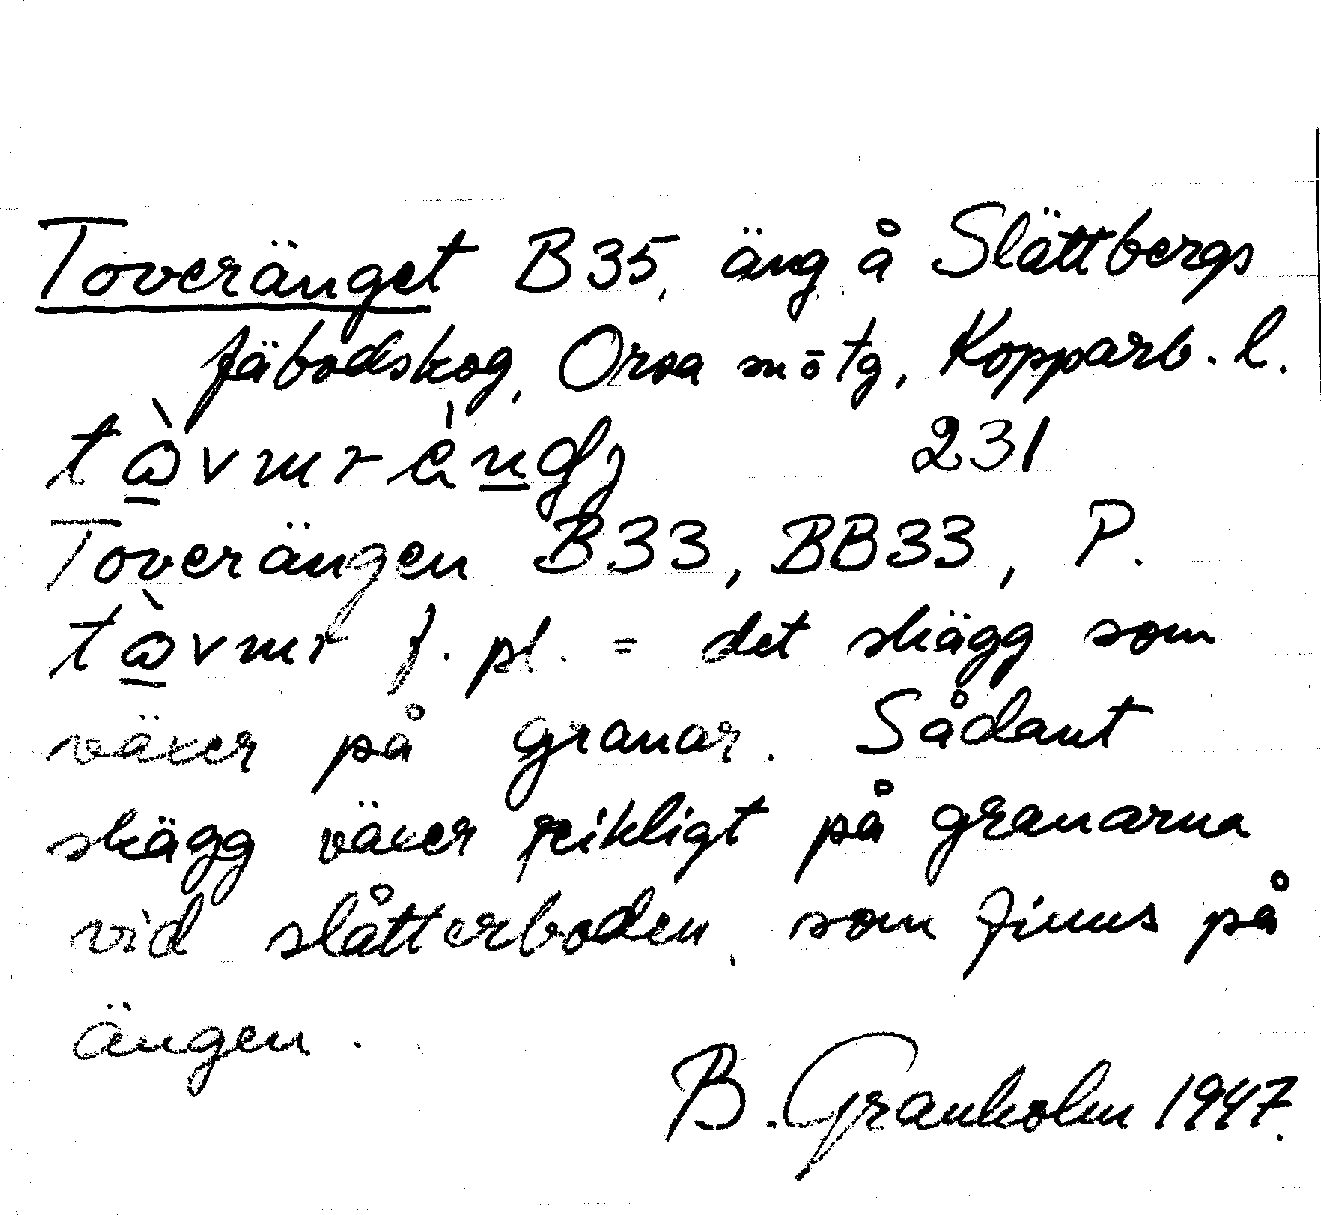 Toveränget B35, äng å Slättbergs
fäbodskog, Orsa sn o tg, Kopparb. l.
231
Toverängen B33, BB33, P.
f. pl. = det skägg som
växer på granar. Sådant
skägg växer rikligt på granarna
vid slåtterboden, som finns på
ängen.
B. Granholm 1947.